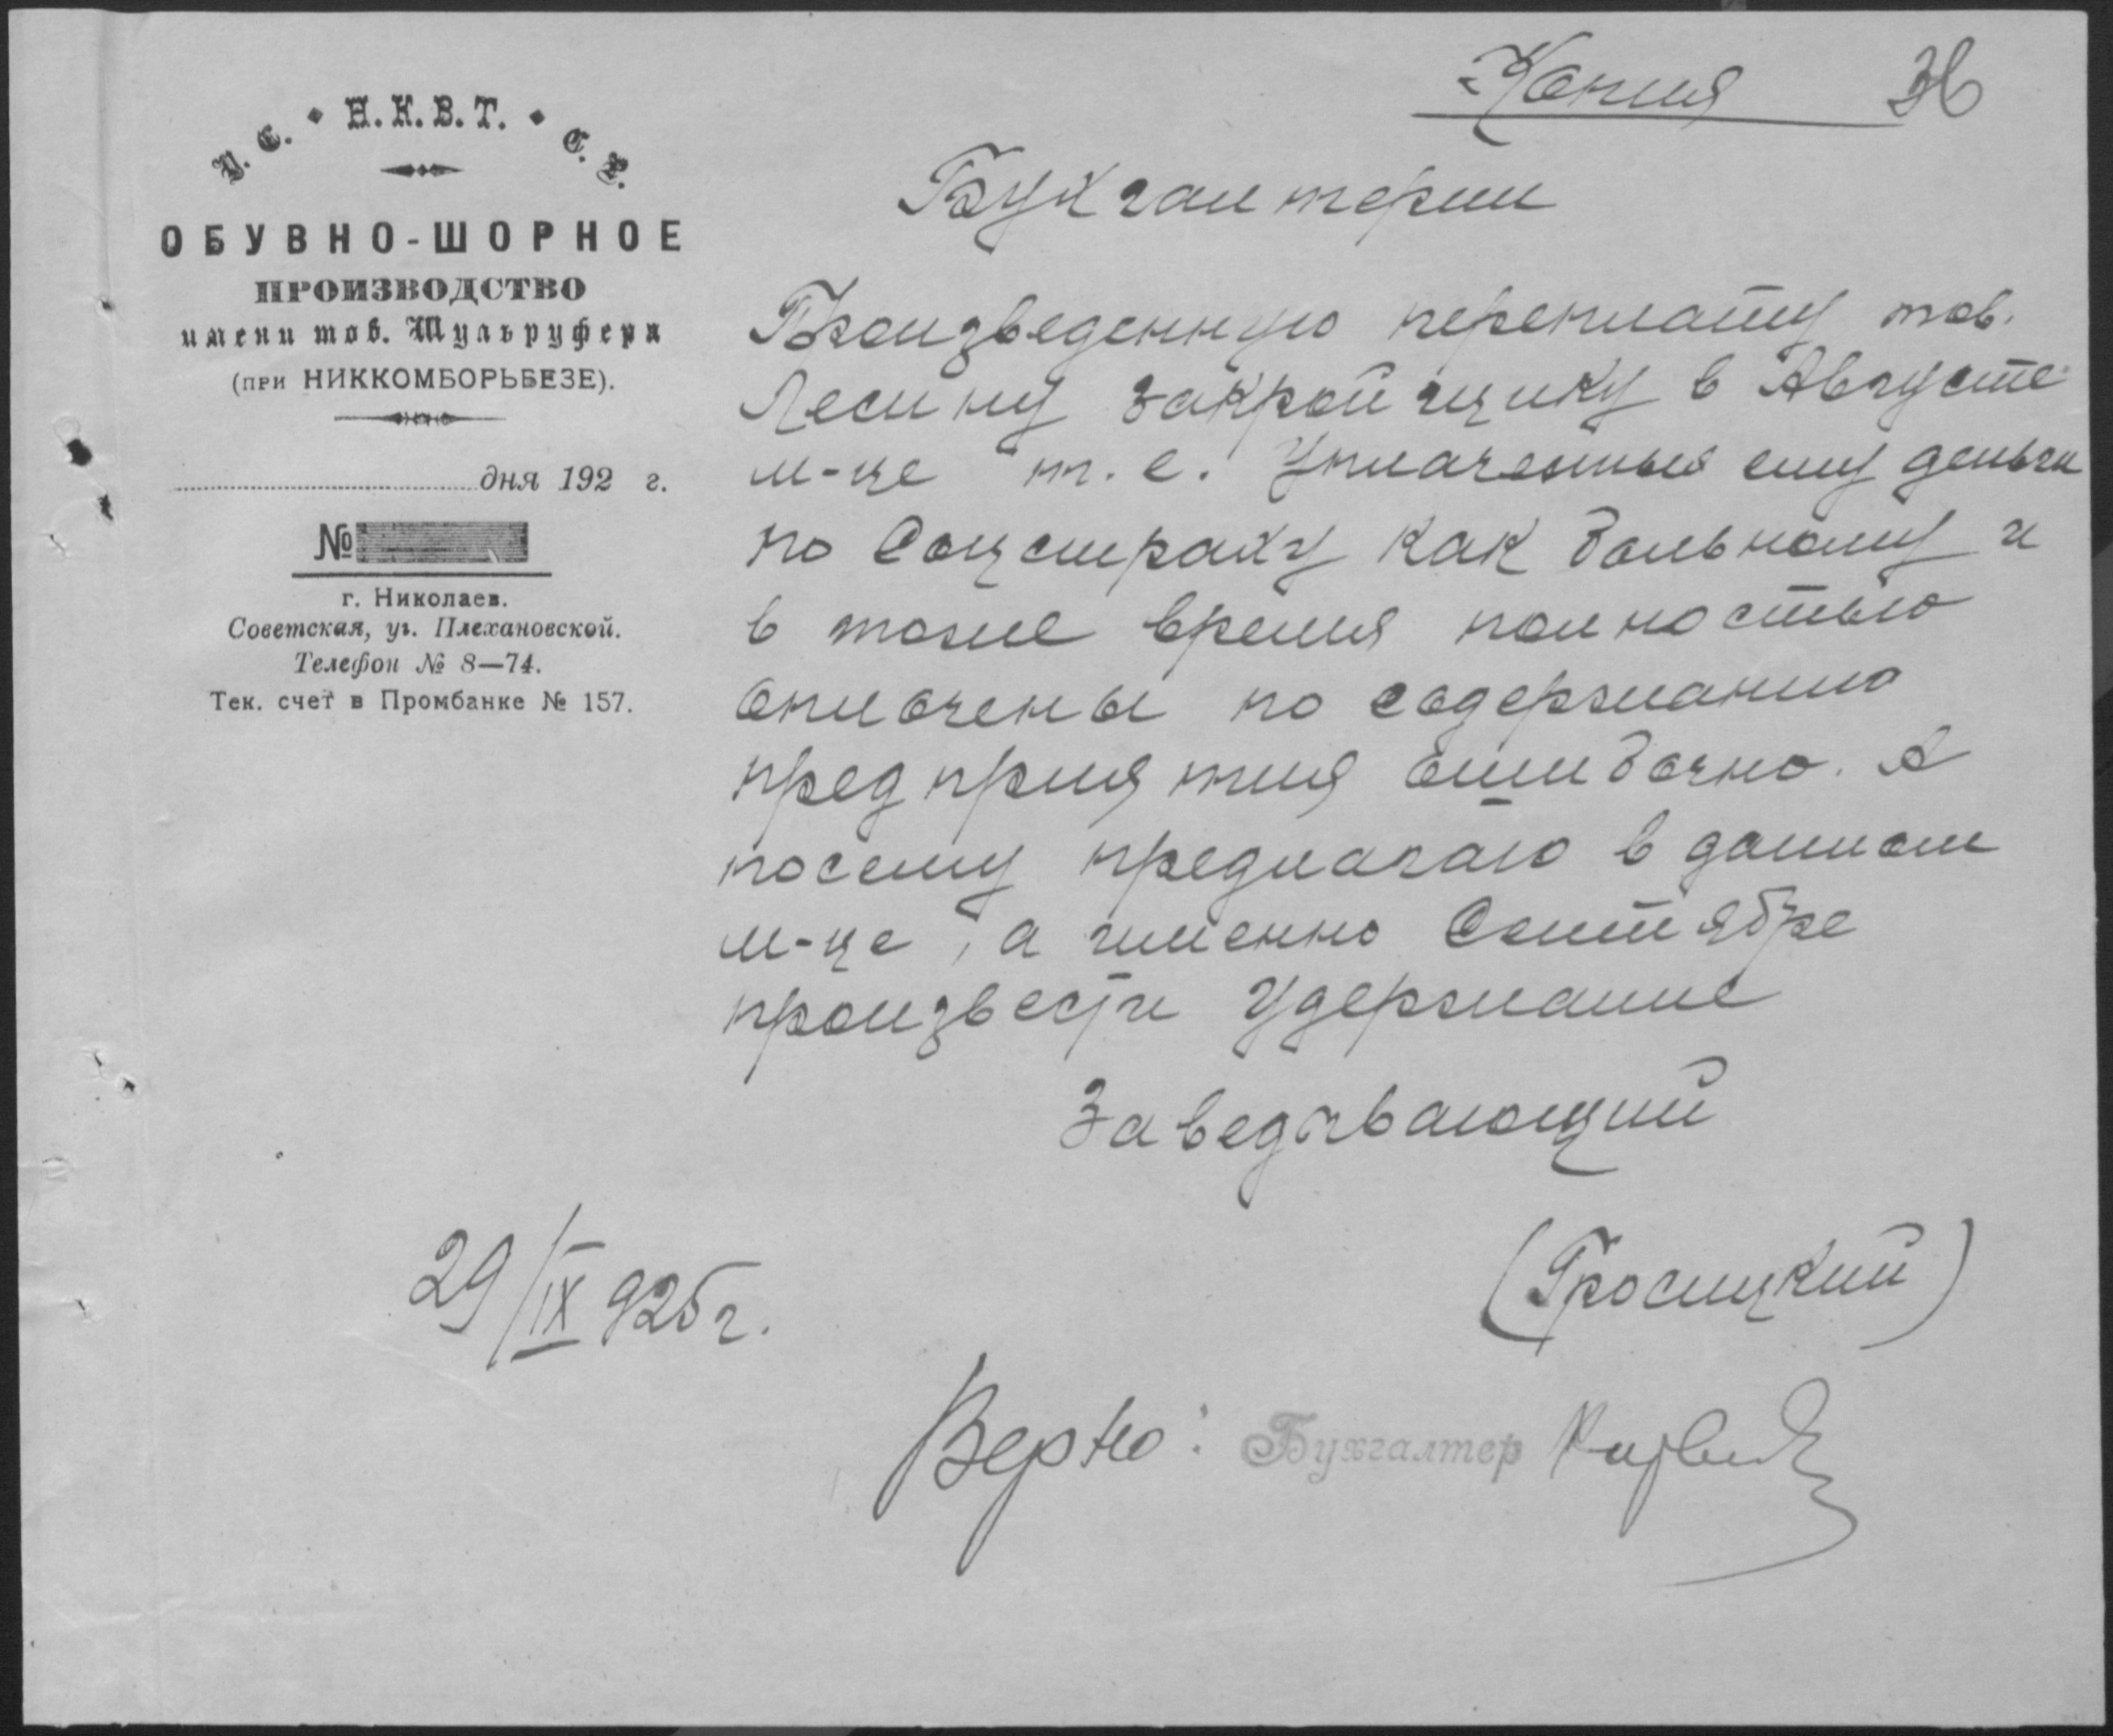 У. С. • Н.К.В.Т. • С. Р.
ОБУВНО-ШОРНОЕ
ПРОИЗВОДСТВО
имени тов. Шульруфера
(при НИККОМБОРЬБЕЗЕ).
дня 192 г.
№
г. Николаев.
Советская, уг. Плехановской.
Телефон № 8—74.
Тек. счет в Промбанке № 157.
Копия 36
Бухгалтерии
Произведенную переплату тов.
Лесину закройщику в Августе
м-це т. е. Уплаченныя ему деньги
по Соцстраху как больному и
в тоже время полностью
оплочены по содержанию
предприятия ошибочно. А
посему предлагаю в данном
м-це, а именно Сентябре
произвести Удержание
Заведывающий
(Гросицкий)
29/IX 925 г.
Верно: Бухгалтер